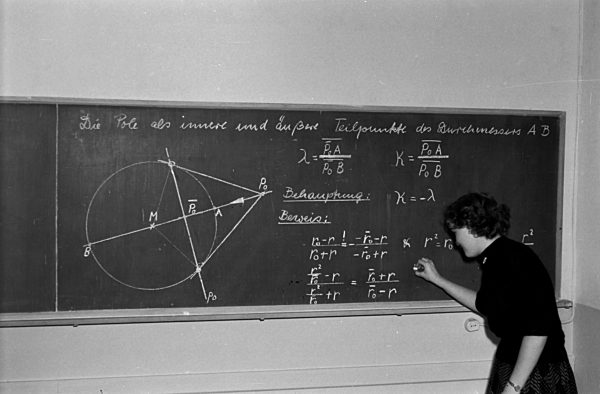 Die Pole als innere und äußere Teilpunkte des Durchmessers A B
λ = P₀A / P₀B K = P̄₀A / P̄₀B
Behauptung: K = -λ
Beweis:
(r₀-r)/(r₀+r) =! -(-r̄₀-r)/(-r̄₀+r) r² = r₀ r²
(r²/r̄₀ - r)/(r²/r̄₀ + r) = (r̄₀+r)/(r̄₀-r)
P₀
P̄₀
M
A
B
p₀